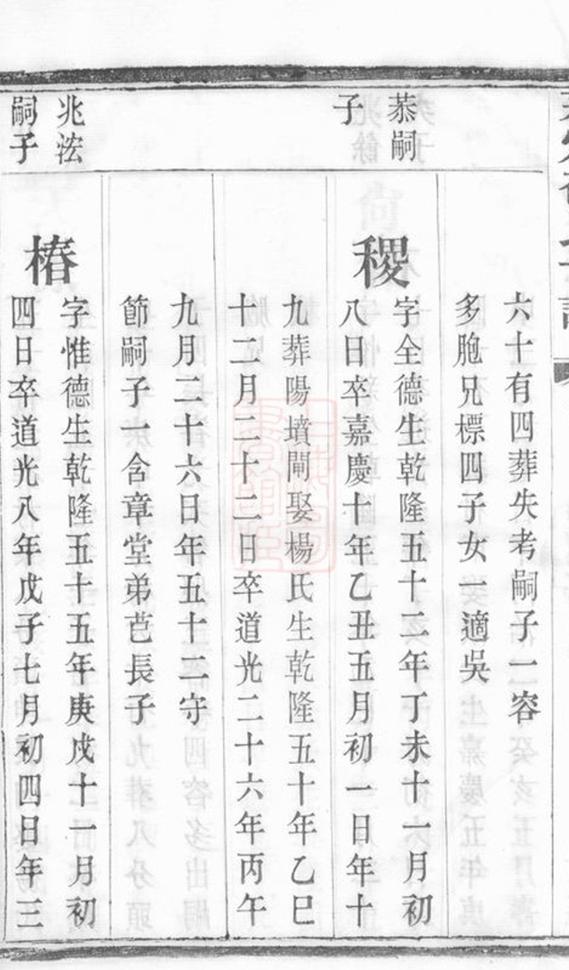 六十有四葬失考嗣子一容
多胞兄標四子女一適吳
恭嗣
子
稷
字全德生乾隆五十二年丁未十一月初
八日卒嘉慶十年乙丑五月初一日年十
九葬陽墳閘娶楊氏生乾隆五十年乙巳
十二月二十二日卒道光二十六年丙午
九月二十六日年五十二守
節嗣子一含章堂弟芑長子
兆
嗣子
椿
字惟德生乾隆五十五年庚戌十一月初
四日卒道光八年戊子七月初四日年三